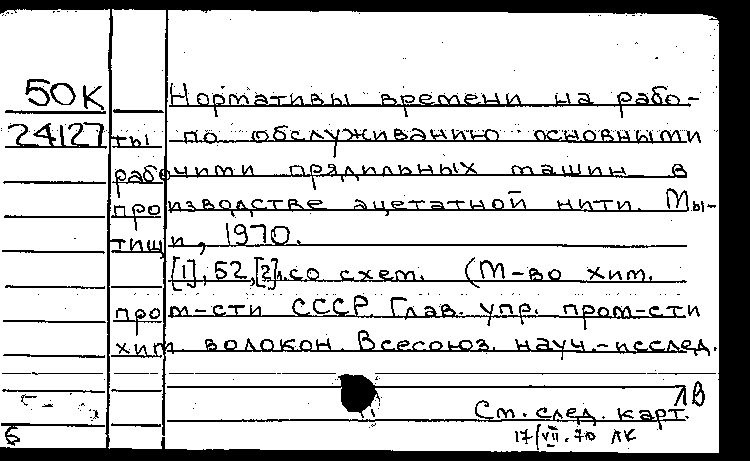 50К Нормативы времени на рабо-
24127 ты по обслуживанию основными
рабочими прядильных машин в
производстве ацетатной нити. Мы-
тищи, 1970.
[1], 52, [2]л. со схем. (М-во хим.
пром-сти СССР. Глав. упр. пром-сти
хим волокон. Всесоюз. науч.-исслед.
ЛВ
См. след. карт.
6 17/VII.70 ЛК